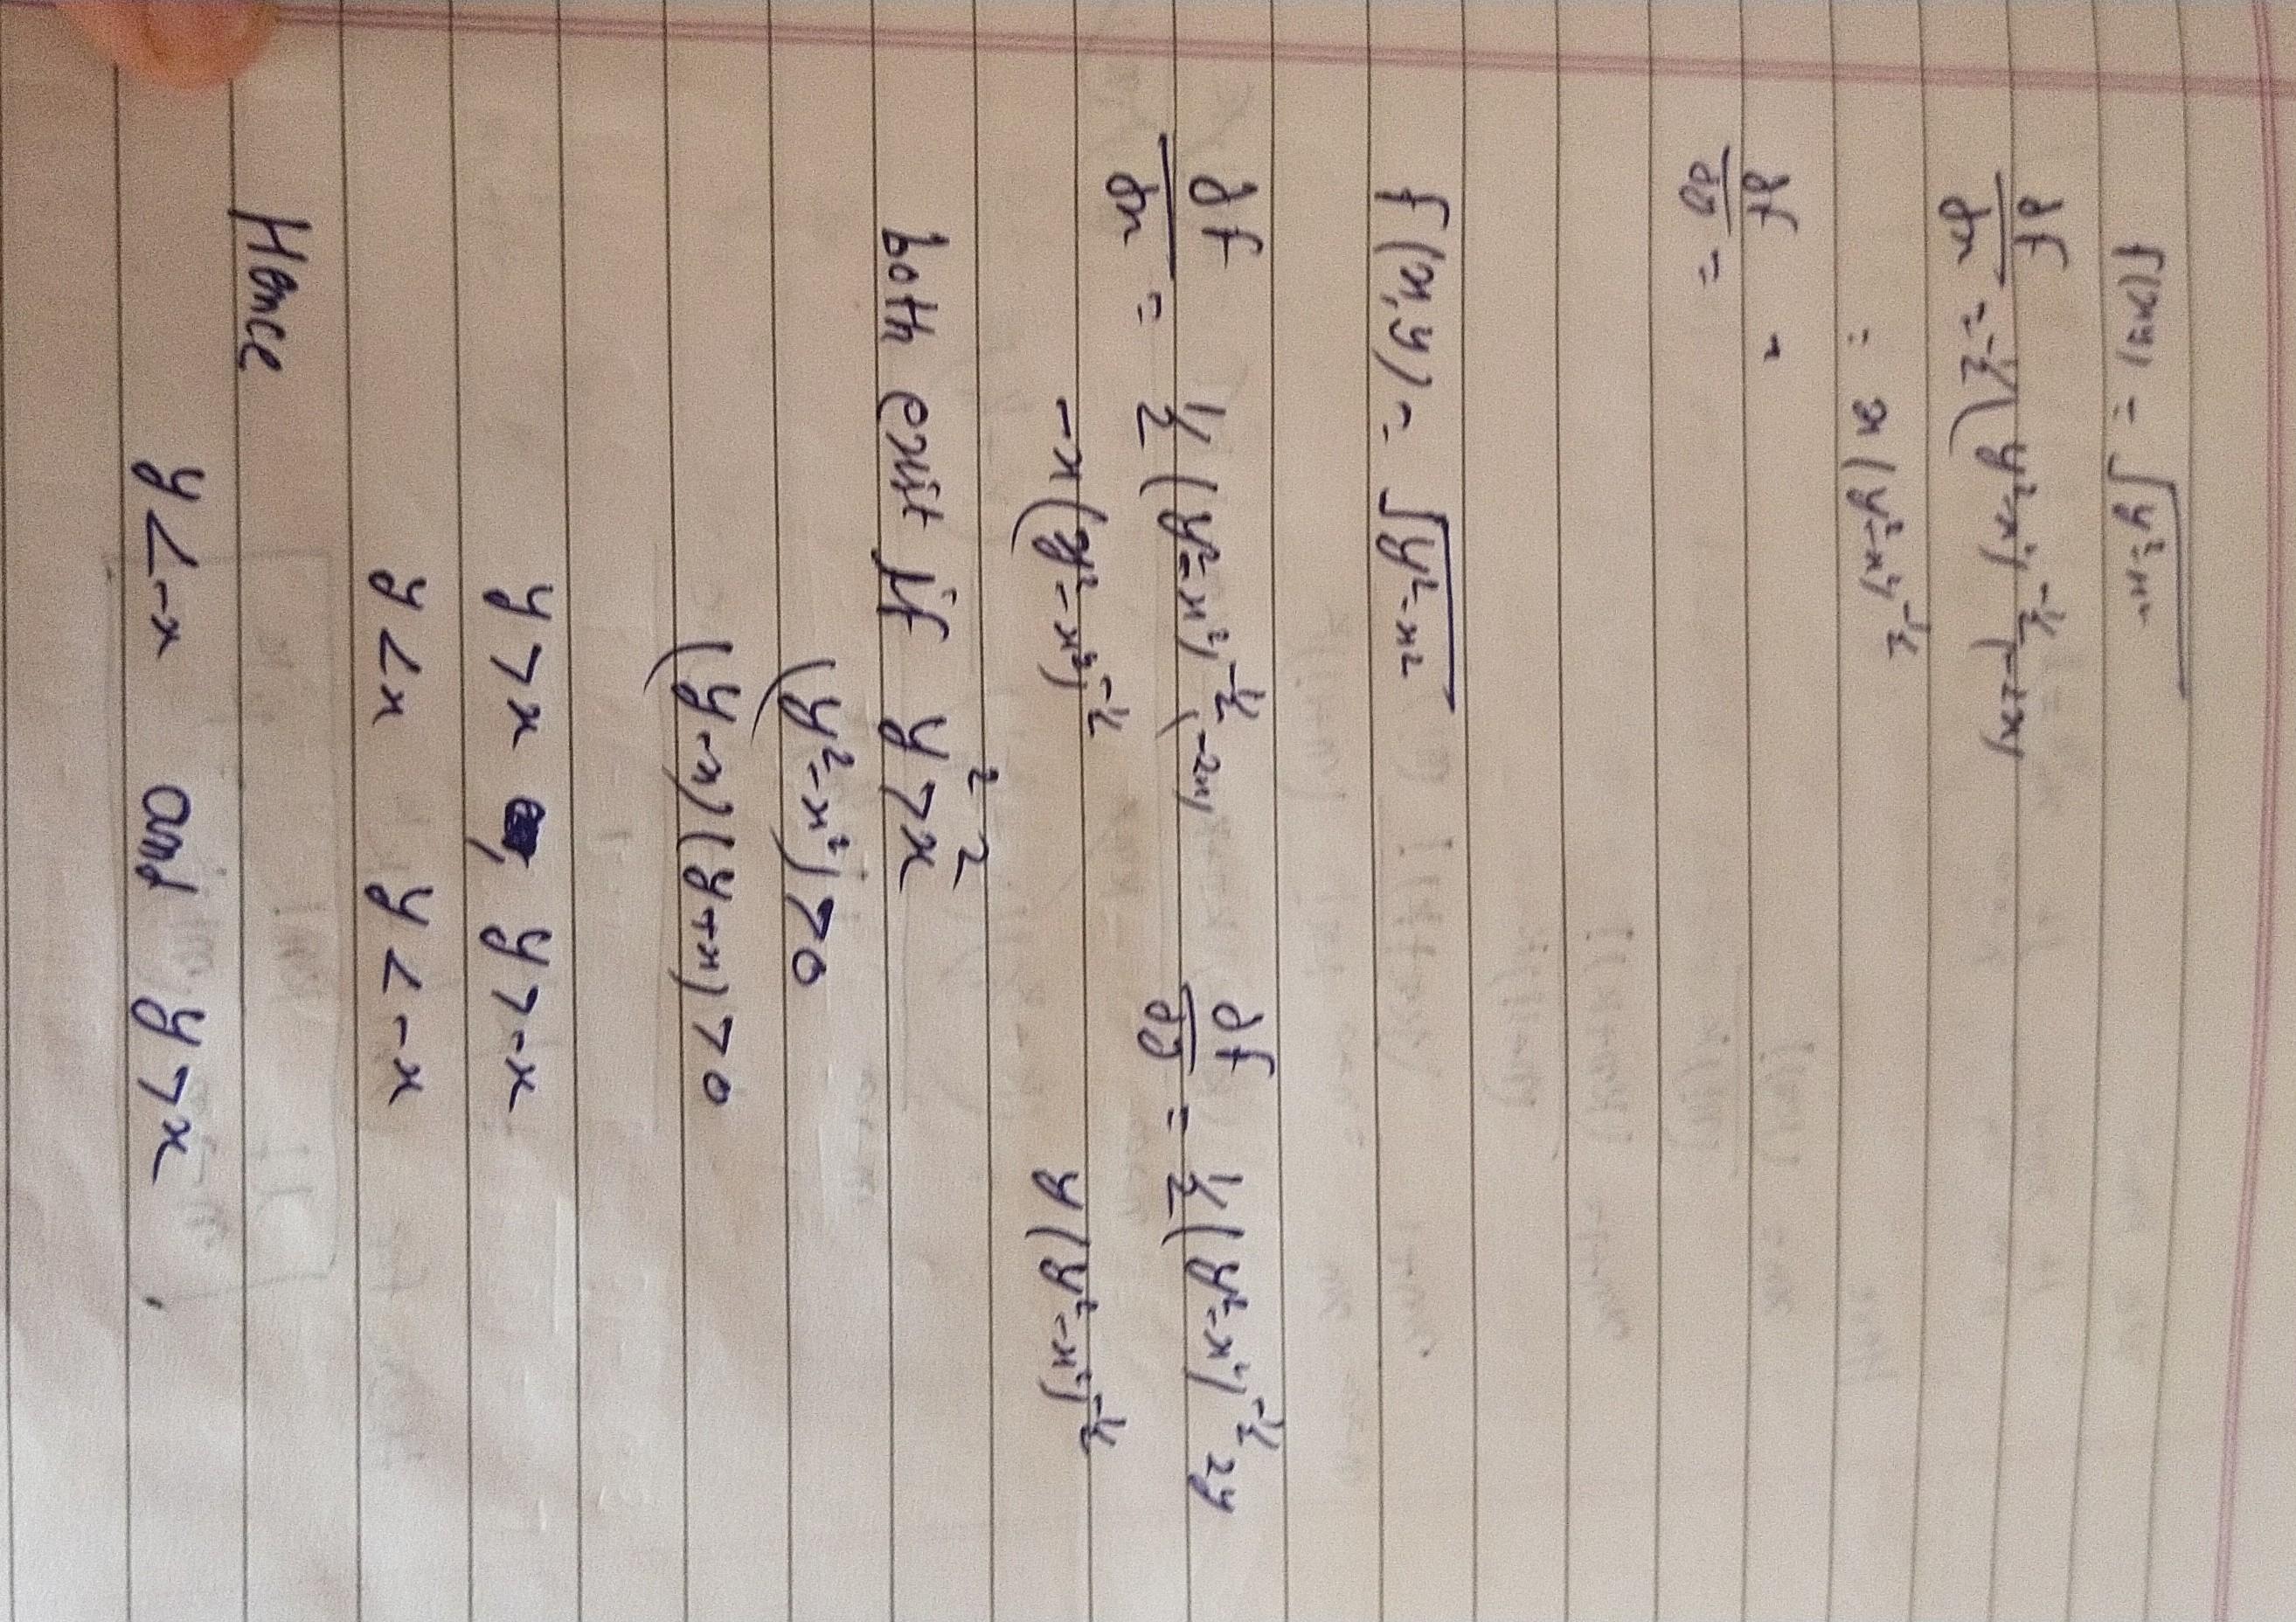 f(x,y) = √y²-x²
∂f/∂x = -1/2 (y²-x²)^-1/2 (-2x)
= x (y²-x²)^-1/2
∂f/∂y = =
f(x,y) = √y²-x²
∂f/∂x = 1/2 (y²-x²)^-1/2 (-2x) ∂f/∂y = 1/2 (y²-x²)^-1/2 2y
-x(y²-x²)^-1/2 y(y²-x²)^-1/2
both exist if y²>x²
(y²-x²)>0
(y-x)(y+x)>0
y>x , y>-x
y<x y<-x
Hence
y<-x and y>x.